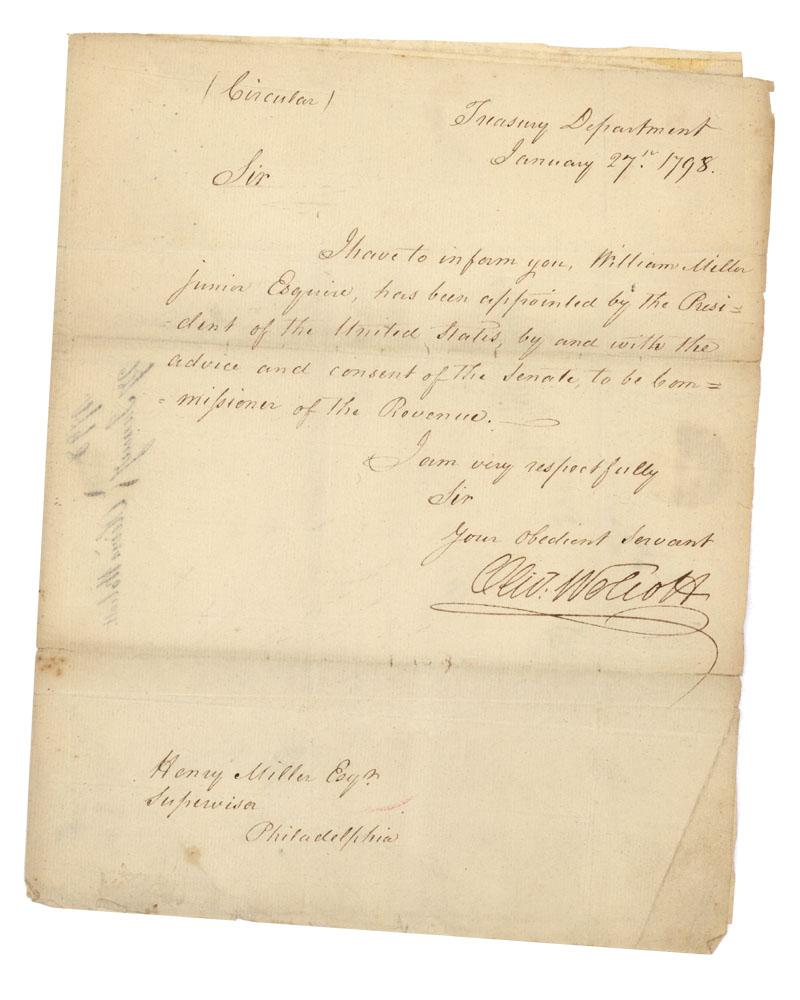 (Circular)
Treasury Department
January 27th. 1798.
Sir
I have to inform you, William Miller
junior Esquire, has been appointed by the Presi=
-dent of the United States, by and with the
advice and consent of the Senate, to be Com=
=missioner of the Revenue.
I am very respectfully
Sir
Your obedient servant
Oliv. Wolcott
Henry Miller Esqr.
Supervisor
Philadelphia